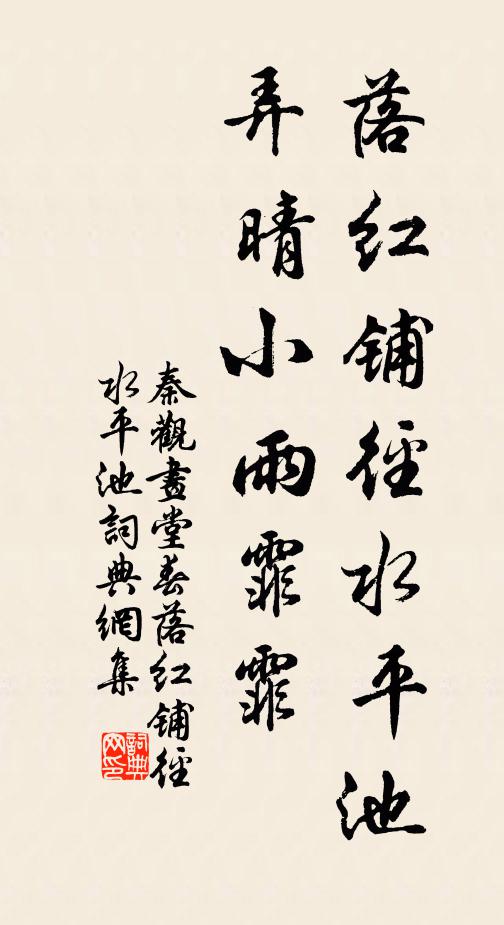 落红铺径水平池
弄晴小雨霏霏
秦觀畫堂春落红铺徑
水平池詞典網集
詞典网印